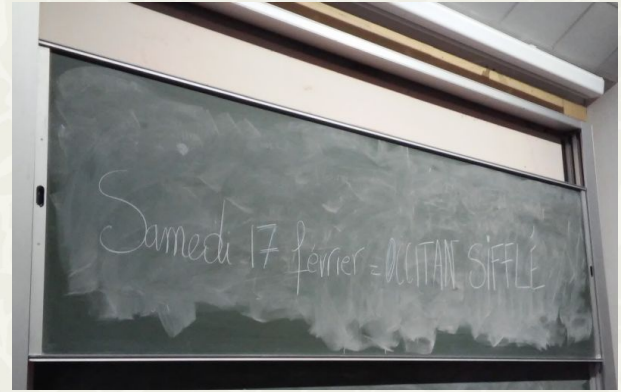 Samedi 17 février = OCCITAN SIFFLÉ